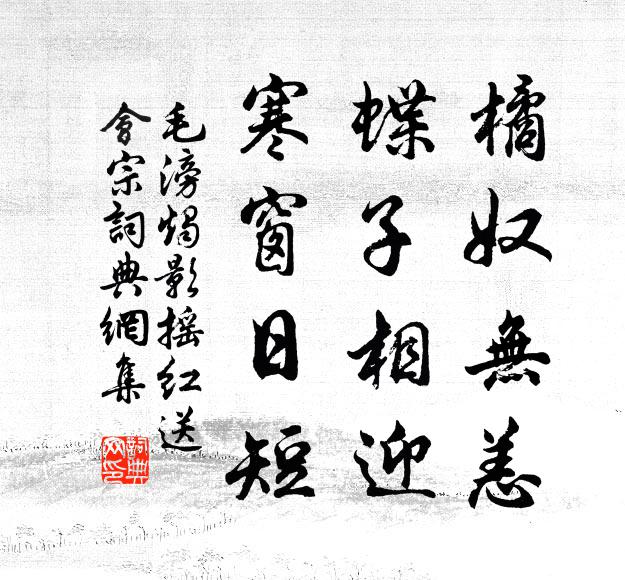 橘奴無恙
蝶子相迎
寒窗日短
毛滂燭影摇红送
會宗詞典網集
詞典
网印